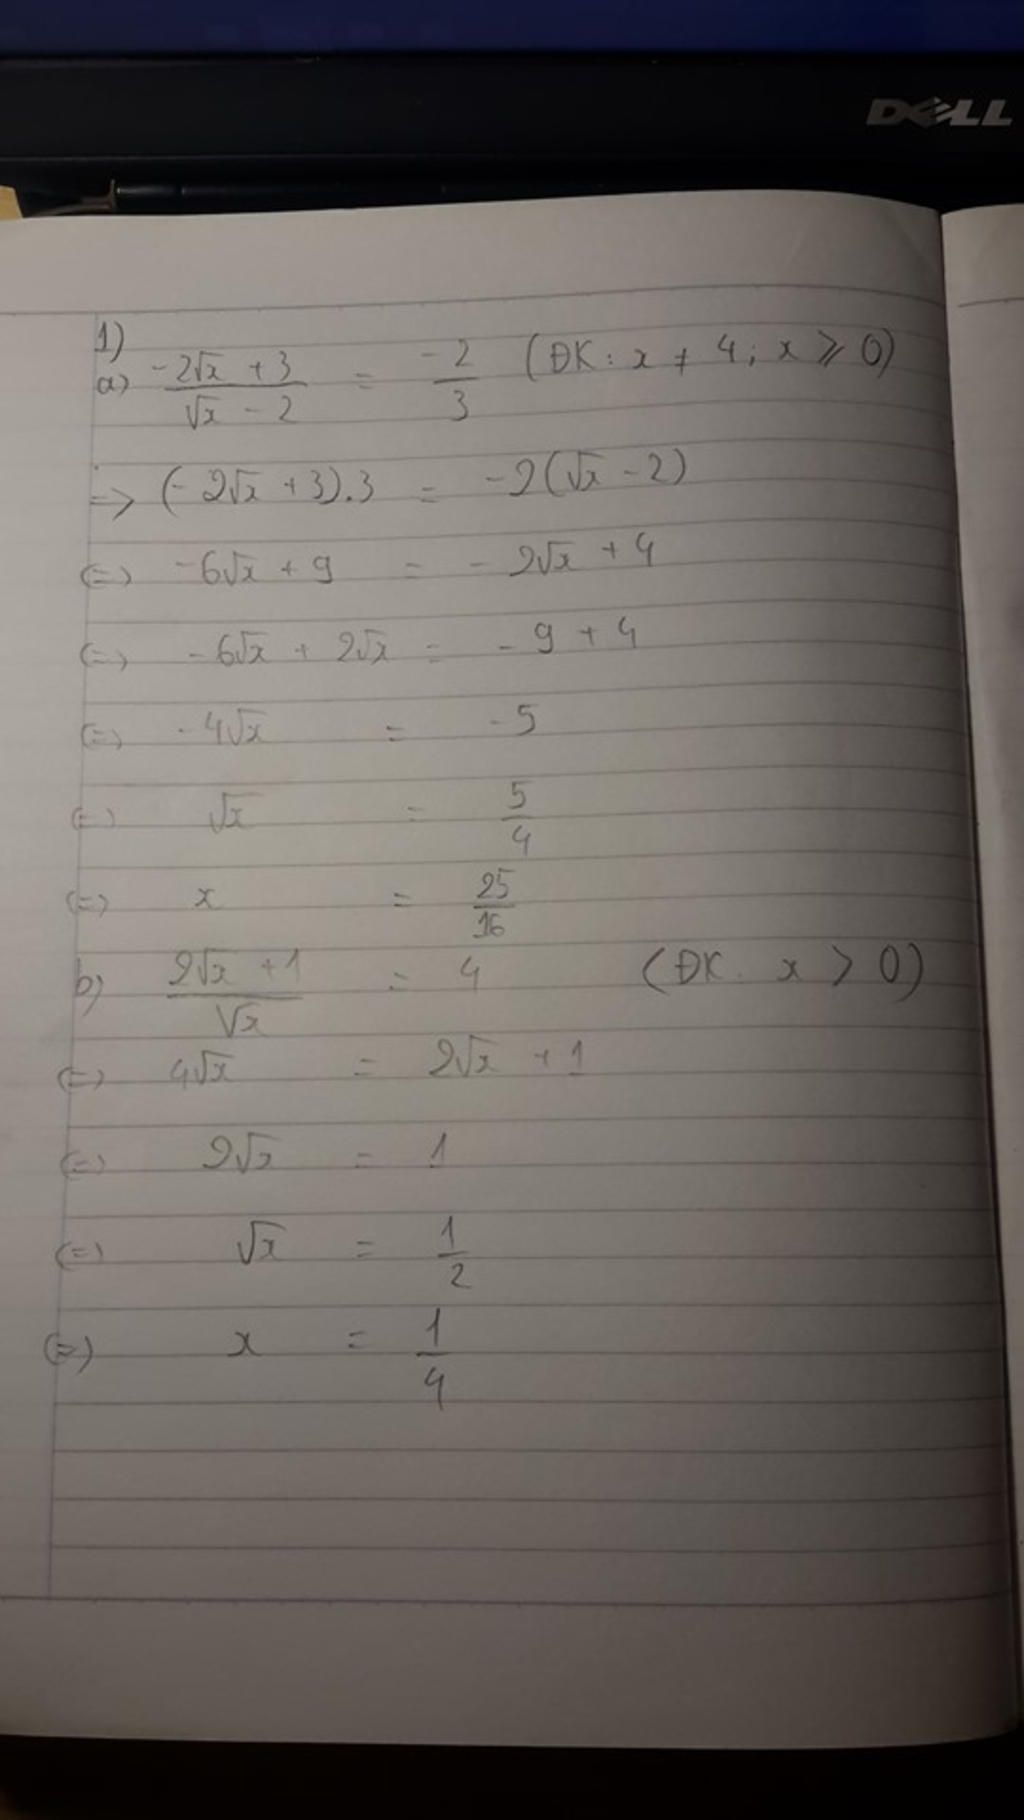 DELL
1)
a) (-2√x + 3)/(√x - 2) = -2/3 (ĐK: x ≠ 4; x ≥ 0)
=> (-2√x + 3).3 = -2(√x - 2)
(=) -6√x + 9 = -2√x + 4
(=) -6√x + 2√x = -9 + 4
(=) -4√x = -5
(=) √x = 5/4
(=) x = 25/16
b) (2√x + 1)/√x = 4 (ĐK. x > 0)
(=) 4√x = 2√x + 1
(=) 2√x = 1
(=) √x = 1/2
(=) x = 1/4